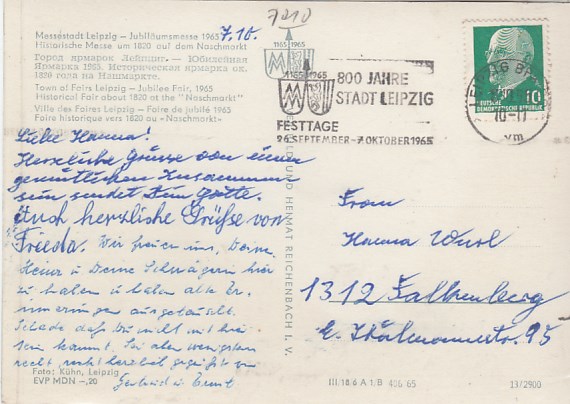 7010
Messestadt Leipzig – Jubiläumsmesse 1965
7.10.
Historische Messe um 1820 auf dem Naschmarkt
Город ярмарок Лейпциг. – Юбилейная
Ярмарка 1965. Историческая ярмарка ок.
1820 года на Нашмаркте.
Town of Fairs Leipzig – Jubilee Fair, 1965
Historical Fair about 1820 at the "Naschmarkt"
Ville des Foires Leipzig – Foire de jubilé 1965
Foire historique vers 1820 au «Naschmarkt»
Liebe Hanna!
Herzliche Grüsse von einem
gemütlichen Zusammen
sein sendet Dein Götte.
Auch herzliche Grüße von
Frieda. Wir freuen uns, Deine
Heinz u Deine Schwägerin hier
zu haben u haben alte Er.
innerungen ausgetauscht.
Schade daß Du nicht mit hier
sein kannst. Sei aber wenigstens
recht recht herzlich gegrüßt von
Gertrud u Ernst
Foto: Kühn, Leipzig
EVP MDN –,20
BILD UND HEIMAT REICHENBACH I. V.
1165 1965
1165 1965
800 JAHRE
STADT LEIPZIG
FESTTAGE
26. SEPTEMBER–7. OKTOBER 1965
LEIPZIG
10-11
vm
DEUTSCHE
DEMOKRATISCHE REPUBLIK
10
Frau
Hanna
1312 Falkenberg
E. Thälmannstr. 95
III 18 6 A 1/B 456 65
13/2900